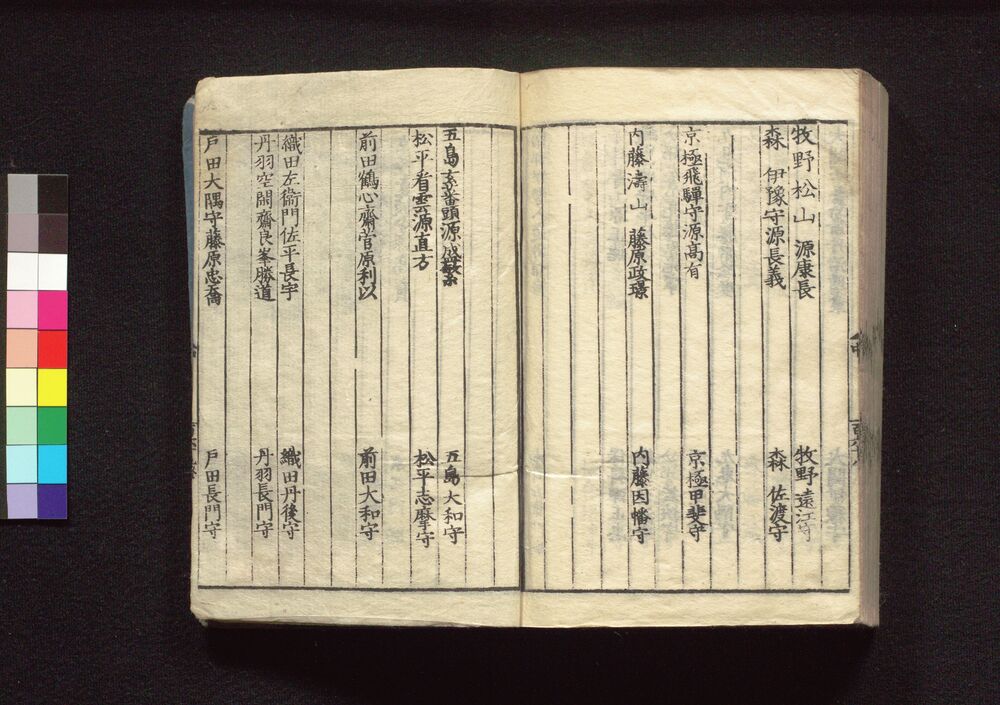 牧野松山 源康長 牧野遠江守
森 伊豫守源長義 森 佐渡守
京極飛驒守源高有 京極甲斐守
内藤濤山 藤原政環 内藤因幡守
五島玄蕃頭源盛繁 五島大和守
松平看雲源直方 松平志摩守
前田鶴心齋菅原利以 前田大和守
織田左衞門佐平長宇 織田丹後守
丹羽空閑齋良峯勝道 丹羽長門守
戸田大隅守藤原忠喬 戸田長門守